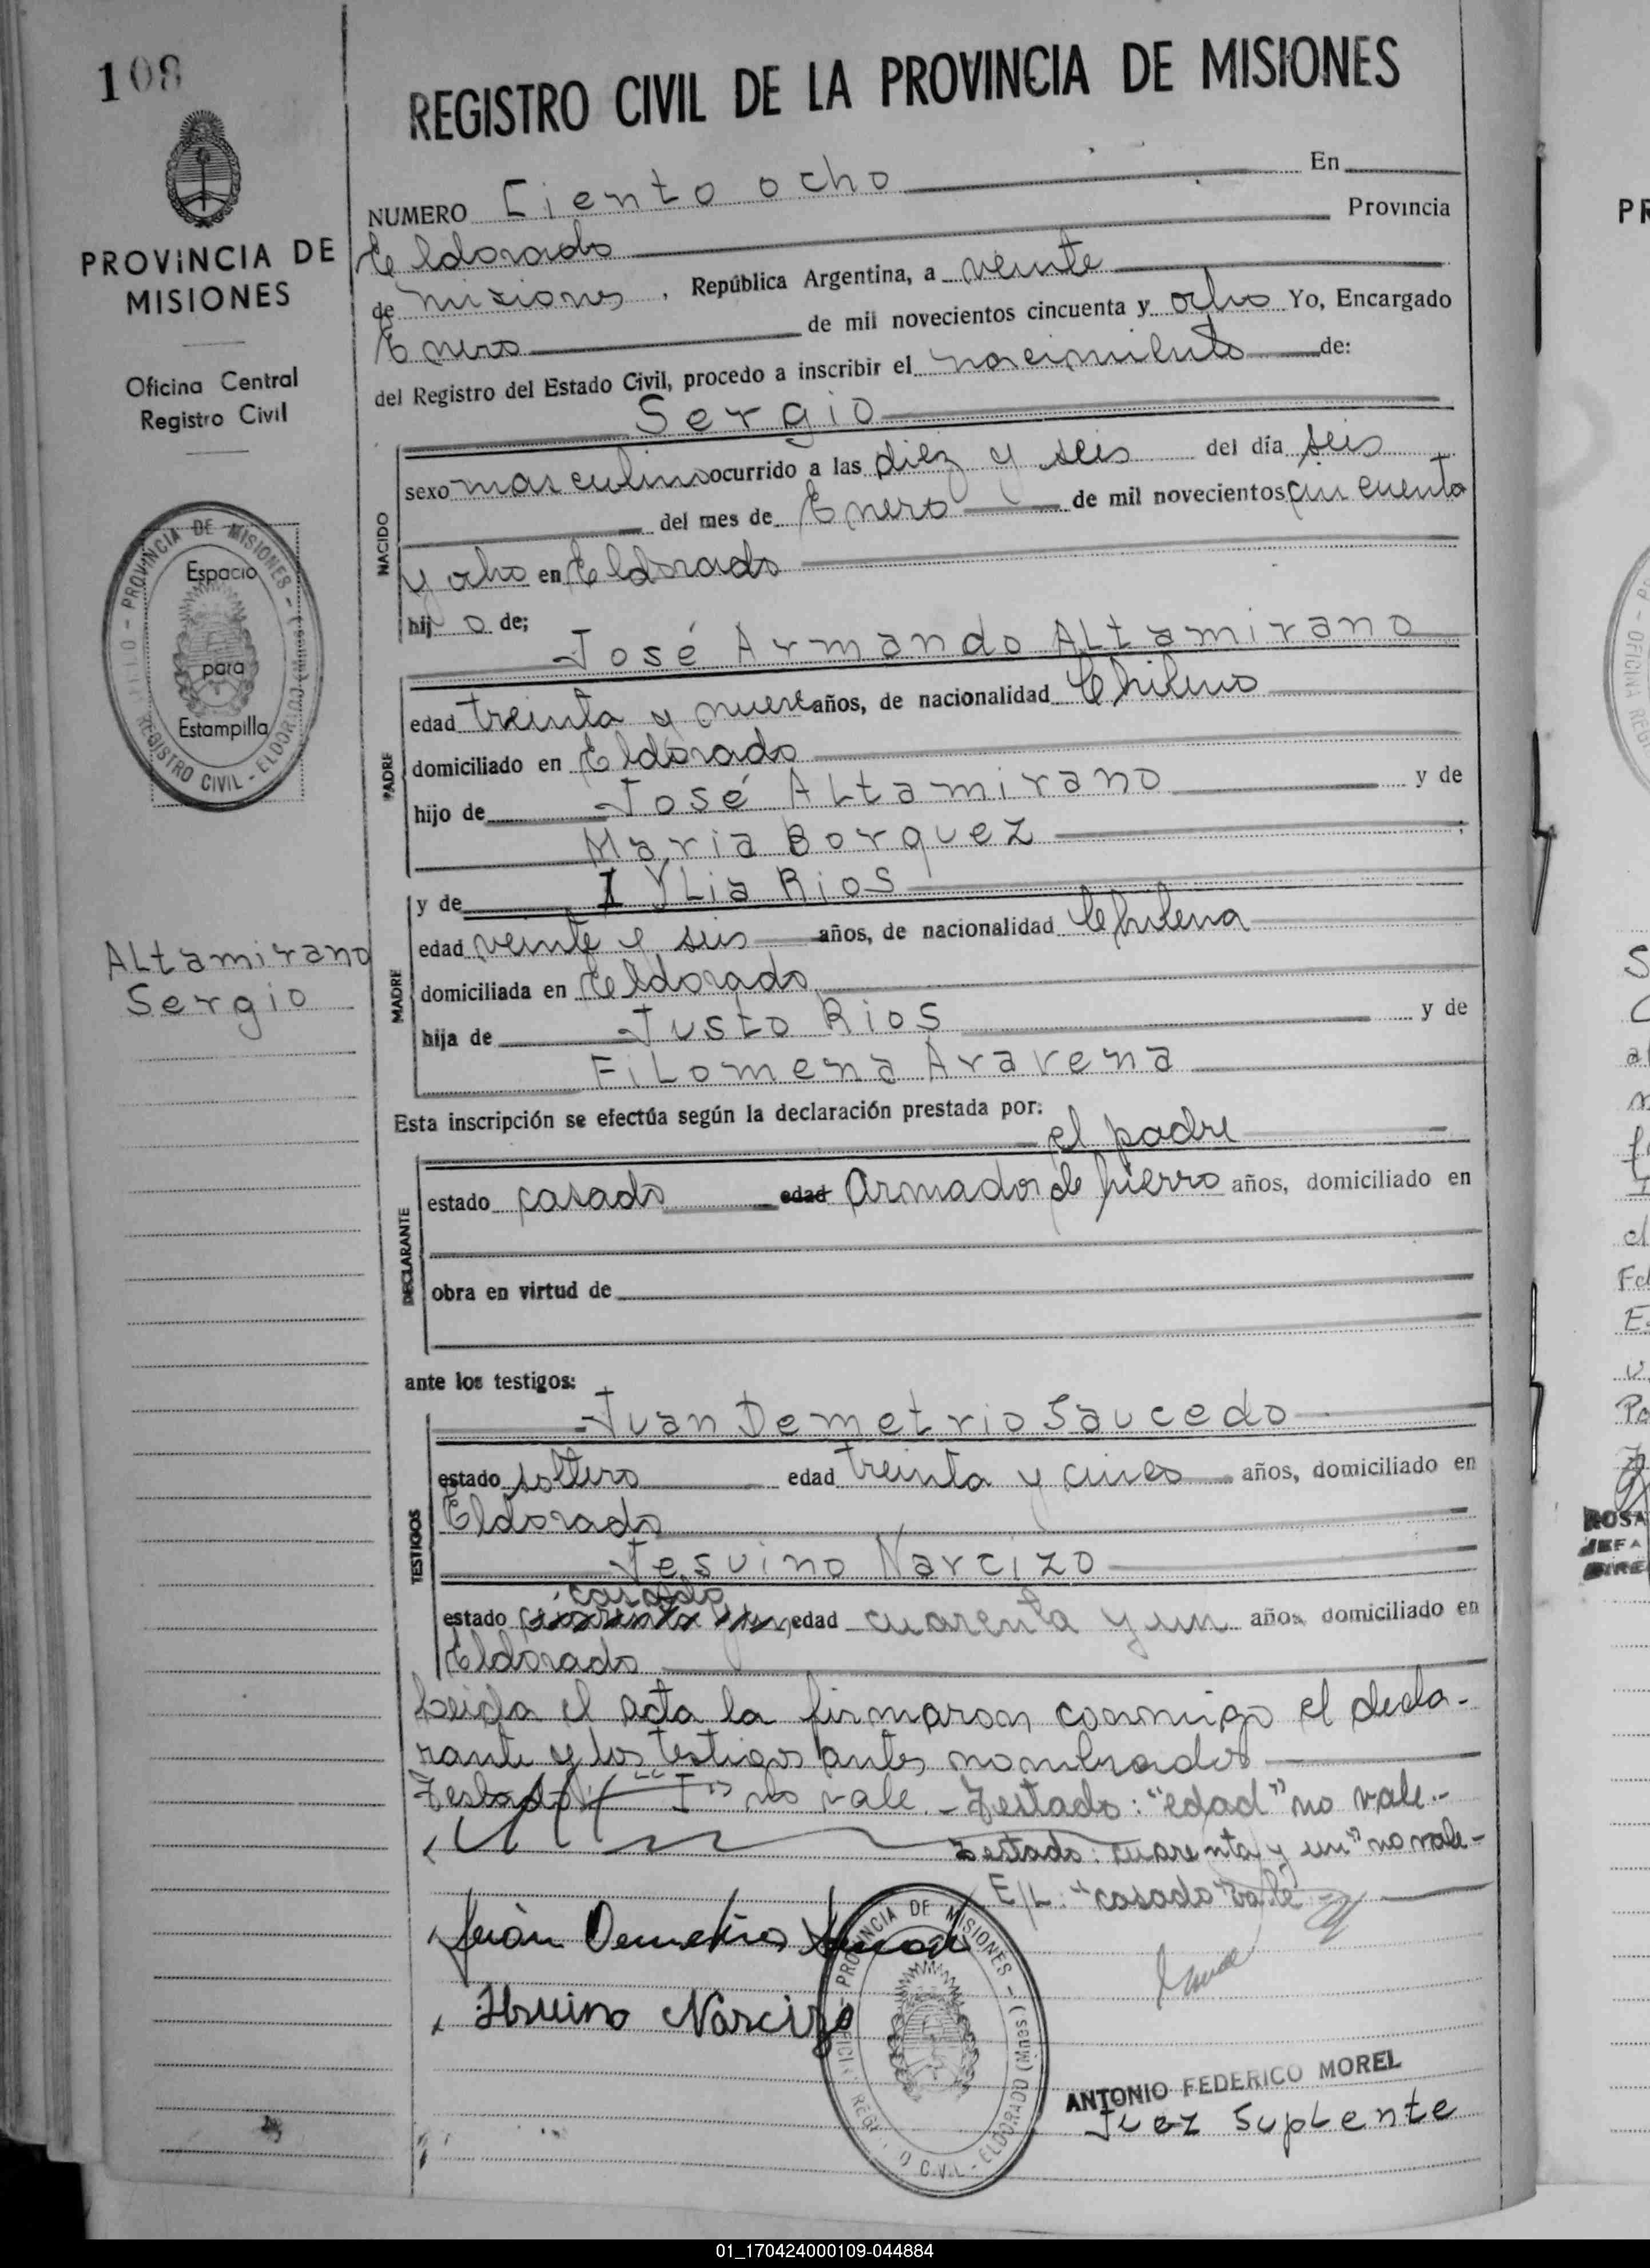 108
REGISTRO CIVIL DE LA PROVINCIA DE MISIONES
PROVINCIA DE
MISIONES
Oficina Central
Registro Civil
Espacio
para
Estampilla
PROVINCIA DE MISIONES
REGISTRO CIVIL - ELDORADO
Altamirano
Sergio
NUMERO Ciento ocho En
Eldorado Provincia
de misiones, República Argentina, a veinte
Enero de mil novecientos cincuenta y ocho Yo, Encargado
del Registro del Estado Civil, procedo a inscribir el nacimiento de:
Sergio
NACIDO
sexo masculino ocurrido a las diez y seis del día seis
del mes de Enero de mil novecientos cincuenta
y ocho en Eldorado
hijo de;
José Armando Altamirano
PADRE
edad treinta y nueve años, de nacionalidad Chileno
domiciliado en Eldorado
hijo de José Altamirano y de
Maria Borquez
y de I Ylia Rios
MADRE
edad veinte y seis años, de nacionalidad Chilena
domiciliada en Eldorado
hija de Justo Rios y de
Filomena Aravena
Esta inscripción se efectúa según la declaración prestada por:
el padre
DECLARANTE
estado casado edad Armador de hierro años, domiciliado en
obra en virtud de
ante los testigos:
Juan Demetrio Saucedo
TESTIGOS
estado soltero edad treinta y cinco años, domiciliado en
Eldorado
Jesuino Narcizo
casado
estado cuarenta y un edad cuarenta y un años, domiciliado en
Eldorado
Leida el acta la firmaron conmigo el decla-
rante y los testigos antes nombrados
Testado: "I" no vale.- Testado: "edad" no vale.-
Testado: cuarenta y un" no vale-
E/L: "casado" vale
Juan Demetrio
Jesuino Narcizo
PROVINCIA DE MISIONES - ELDORADO (Mnes)
ANTONIO FEDERICO MOREL
Juez Suplente
01_170424000109-044884